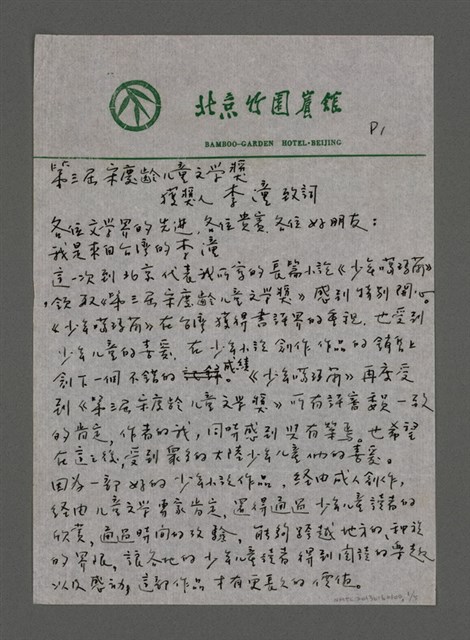 北京竹园宾馆
BAMBOO-GARDEN HOTEL·BEIJING
P1
第三届宋慶齡儿童文学獎
獲獎人 李潼 致詞
各位文学界的先进，各位貴賓，各位好朋友：
我是來自台湾的李潼
這一次到北京代表我所寫的長篇小說《少年噶瑪蘭》
領取《第三届宋慶齡儿童文学獎》感到特別開心。
《少年噶瑪蘭》在台湾獲得書評界的重視，也受到
少年儿童的喜爱，在少年小說創作作品的銷售上
創下一個不錯的成績。《少年噶瑪蘭》再度受
到《第三届宋慶齡儿童文学獎》所有評審委員一致
的肯定，作者的我，同時感到與有榮焉。也希望
在這之後，受到眾多的大陸少年儿童們的喜爱。
因為一部好的少年小說作品，經由成人創作，
經由儿童文学專家肯定，還得通過少年儿童讀者的
欣賞，通過時間的攷驗，能夠跨越地方的、種族
的界限，讓各地的少年儿童讀者得到閱讀的樂趣
以及感动，這部作品才有更長久的價值。